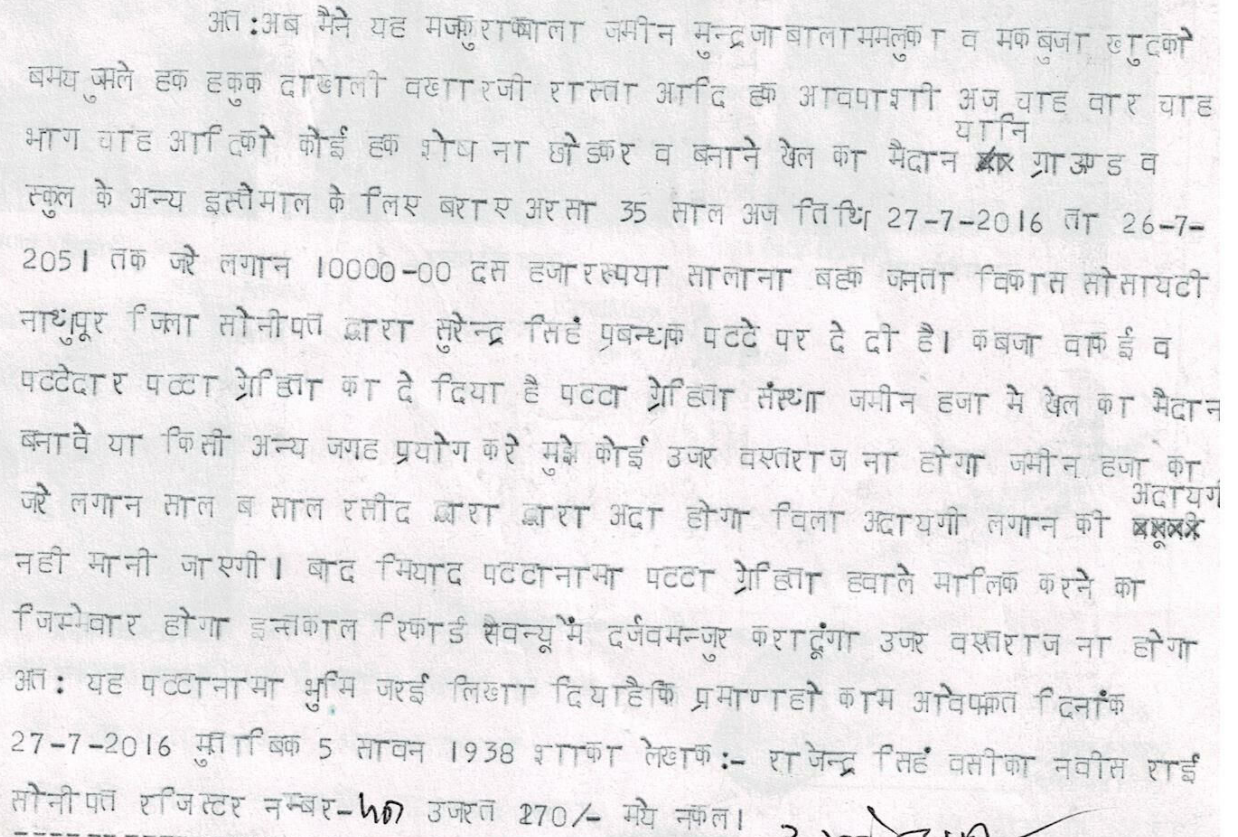 अत :अब मैने यह मजकुराब्बाला जमीन मुन्द्रजाबालाममलुका व मकबुजा खुदको
बमय जुमले हक हकुक दाखाली वखारजी रास्ता आदि हक आवपाशी अज चाह वार चाह
यानि
भाग चाह आदिको कोई हक शेष ना छोडकर व बनाने खेल का मैदान ग्राऊण्ड व
स्कुल के अन्य इस्तेमाल के लिए बराए अरसा 35 साल अज तिथि 27-7-2016 ता 26-7-
2051 तक जरे लगान 10000-00 दस हजाररूपया सालाना बहक जनता विकास सोसायटी
नाथुपूर जिला सोनीपत द्वारा सुरेन्द्र सिहं प्रबन्धक पटटे पर दे दी है। कबजा वाकई व
पटटेदार पटटा ग्रेहिता का दे दिया है पटटा ग्रेहिता संस्था जमीन हजा मे खेल का मैदान
बनावे या किसी अन्य जगह प्रयोग करे मुझे कोई उजर वस्तराज ना होगा जमीन हजा का
अदायगी
जरे लगान साल ब साल रसीद द्वारा द्वारा अदा होगा विला अदायगी लगान की
नही मानी जाएगी। बाद मियाद पटटानामा पटटा ग्रेहिता हवाले मालिक करने का
जिम्मेवार होगा इन्तकाल रिकार्ड रैवन्यू में दर्जवमन्जुर करादूंगा उजर वस्तराज ना होगा
अत : यह पटटानामा भुमि जरई लिखा दियाहैकि प्रमाणहो काम आवेफक्त दिनांक
27-7-2016 मुताबिक 5 सावन 1938 शाका लेखक :- राजेन्द्र सिहं वसीका नवीस राई
सोनीपत रजिस्टर नम्बर- उजरत 270/- मये नकल।